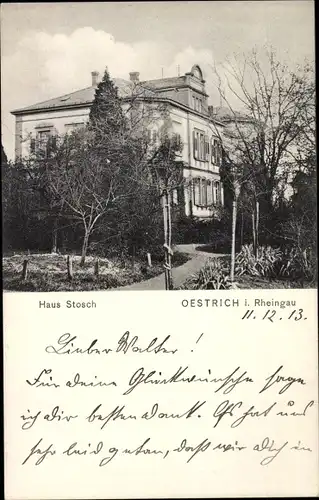 Haus Stosch
OESTRICH i. Rheingau
11.12.13.
Lieber Walter!
Für deine Glückwünsche sage
ich dir besten dank. Es hat uns
sehr leid getan, daß wir dich in